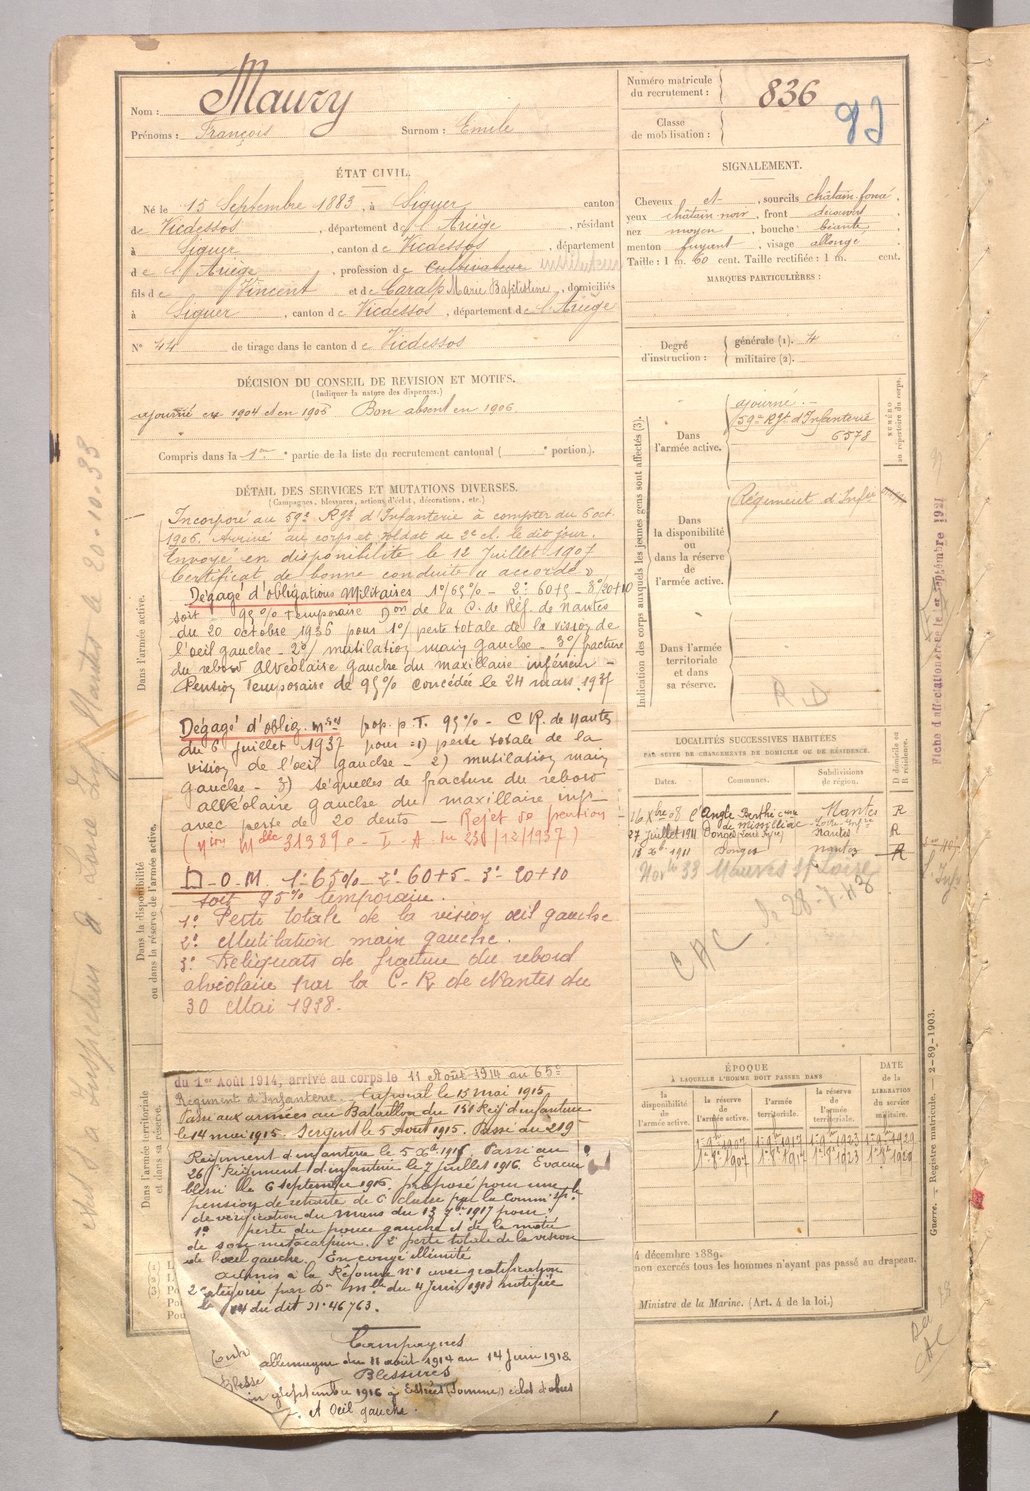 Nom : Maury
Prénoms : François Surnom : Emile
Numéro matricule du recrutement : 836
Classe de mobilisation :
ÉTAT CIVIL.
Né le 15 Septembre 1883, à Siguer canton
de Vicdessos, département de l'Ariège, résidant
à Siguer, canton de Vicdessos, département
de l'Ariège, profession de cultivateur
fils de Vincent et de Caralp Marie Baptistine, domiciliés
à Siguer, canton de Vicdessos, département de l'Ariège
N° 44 de tirage dans le canton de Vicdessos
SIGNALEMENT.
Cheveux et, sourcils châtain foncé
yeux châtain-noir, front découvert
nez moyen, bouche béante,
menton fuyant, visage allongé
Taille : 1 m. 60 cent. Taille rectifiée : 1 m. cent.
MARQUES PARTICULIÈRES :
Degré d'instruction : générale (1). 4
militaire (2).
DÉCISION DU CONSEIL DE REVISION ET MOTIFS.
(Indiquer la nature des dispenses.)
ajourné en 1904 et en 1905 Bon absent en 1906
Compris dans la 1re partie de la liste du recrutement cantonal ( e portion).
DÉTAIL DES SERVICES ET MUTATIONS DIVERSES.
(Campagnes, blessures, actions d'éclat, décorations, etc.)
Dans l'armée active.
Incorporé au 59e Rgt d'Infanterie à compter du 6 oct
1906. Arrivé au corps et soldat de 2e cl. le dit jour.
Envoyé en disponibilité le 12 Juillet 1907
Certificat de bonne conduite "accordé"
Dégagé d'obligations Militaires 1°/65% - 2° 60+5 - 3°/20+10
soit 95% Temporaire Don de la C. de Réf. de Nantes
du 20 octobre 1936 pour 1°/ perte totale de la vision de
l'œil gauche - 2°/ mutilation main gauche - 3°/ fracture
du rebord alvéolaire gauche du maxillaire inférieur -
Pension Temporaire de 95% concédée le 24 mars 1937
Dégagé d'oblig. mres prop. p. T. 95% - C.R. de Nantes
du 6 juillet 1937 pour 1) perte totale de la
vision de l'œil gauche - 2) mutilation main
gauche - 3) séquelles de fracture du rebord
alvéolaire gauche du maxillaire infr
avec perte de 20 dents - Rejet de pension
- O.M. 1° 65% - 2° 60+5 - 3° 20+10
soit 95% temporaire.
1° Perte totale de la vision œil gauche
2° Mutilation main gauche.
3° Reliquats de fracture du rebord
alvéolaire par la C.R. de Nantes du
30 Mai 1938.
Dans la disponibilité ou dans la réserve de l'armée active.
Dans l'armée territoriale et sa réserve.
du 1er Août 1914, arrivé au corps le 11 Août 1914 au 65e
Régiment d'Infanterie. Caporal le 15 mai 1915
Passé aux armées au Bataillon du 131 Régt d'infanterie
le 14 mai 1915. Sergent le 5 Août 1915. Passé au 219
Régiment d'infanterie le 5 Xbre 1915. Passé au
26e Régiment d'infanterie le 7 juillet 1916. Evacué
blessé le 6 septembre 1916. proposé pour une
pension de retraite de 6e classe par la Common sple
de vérification du Mans du 13 7bre 1917 pour
1° perte du pouce gauche et de la moitié
de son métacarpien. 2° perte totale de la vision
de l'œil gauche. En congé illimité
admis à la Réforme N°1 avec gratification
2e catégorie par Don mlle du 4 Juin 1918 notifiée
le 14 du dit N° 46763.
Campagnes
Contre allemagne du 11 août 1914 au 14 Juin 1918
Blessures
Blessé septembre 1916 à Estrées (Somme) éclat d'obus
et œil gauche.
Indication des corps auxquels les jeunes gens sont affectés (3).
NUMÉRO au répertoire du corps.
Dans l'armée active.
ajourné. -
59e Rgt d'Infanterie
6578
Dans la disponibilité ou dans la réserve de l'armée active.
Régiment d'Infie
Dans l'armée territoriale et dans sa réserve.
R D
LOCALITÉS SUCCESSIVES HABITÉES
PAR SUITE DE CHANGEMENTS DE DOMICILE OU DE RÉSIDENCE.
Dates. Communes. Subdivisions de région. D domicile ou R résidence.
16 Xbre 08 Nantes R
de Missillac Loire Infre
27 juillet 1911 Donges Nantes R
1911 Donges Nantes R
33 Mauves s/ Loire
le 28-7-43
CAC
ÉPOQUE
À LAQUELLE L'HOMME DOIT PASSER DANS
la disponibilité de l'armée active. la réserve de l'armée active. l'armée territoriale. la réserve de l'armée territoriale.
DATE de la LIBÉRATION du service militaire.
4 décembre 1889.
non exercés tous les hommes n'ayant pas passé au drapeau.
Ministre de la Marine. (Art. 4 de la loi.)
Guerre. — Registre matricule. — 2-89-1903.
Fiche d'affectation créée le 1er Septembre 1921